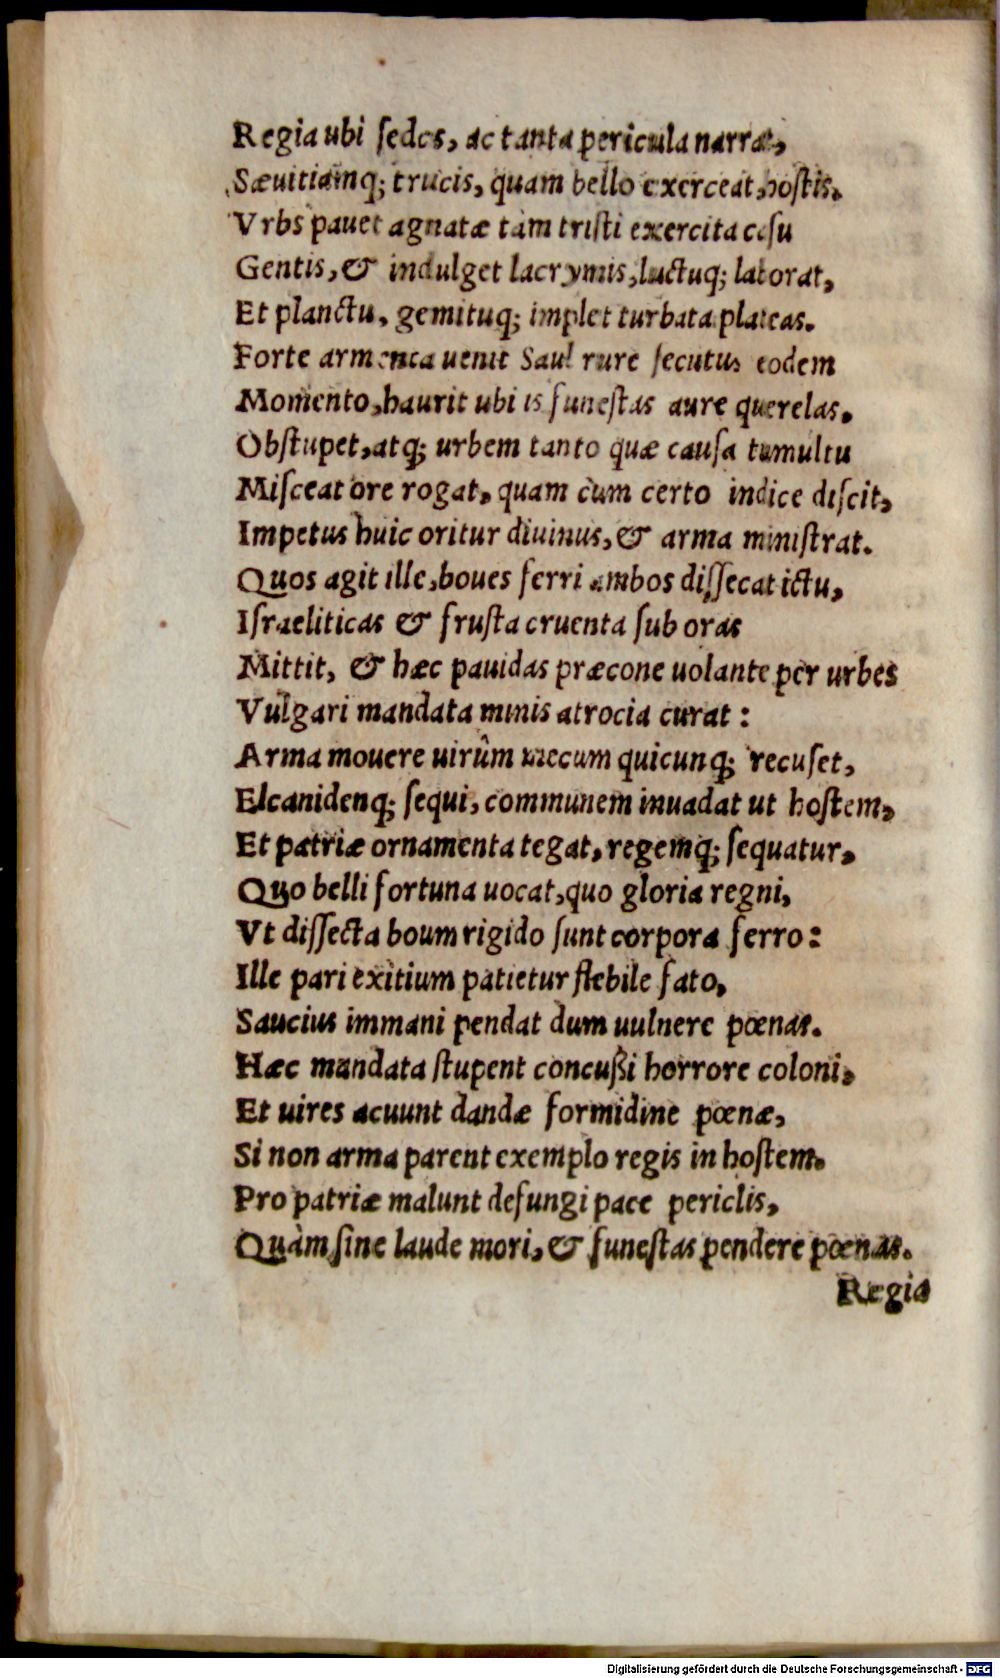 Regia ubi ſedes, ac tanta pericula narrat,
Sæuitiamq; trucis, quam bello exerceat, hoſtis.
Vrbs pauet agnatæ tàm triſti exercita caſu
Gentis, & indulget lacrymis, luctuq; laborat,
Et planctu, gemituq; implet turbata plateas.
Forte armenta uenit Saul rure ſecutus eodem
Momento, haurit ubi is funeſtas aure querelas.
Obſtupet, atq; urbem tanto quæ cauſa tumultu
Miſceat ore rogat, quam cùm certo indice diſcit,
Impetus huic oritur diuinus, & arma miniſtrat.
Quos agit ille, boues ferri ambos diſſecat ictu,
Iſraeliticas & fruſta cruenta ſub oras
Mittit, & hæc pauidas præcone uolante per urbes
Vulgari mandata minis atrocia curat:
Arma mouere uirûm mecum quicunq; recuſet,
Elcanidenq; ſequi, communem inuadat ut hoſtem,
Et patriæ ornamenta tegat, regemq; ſequatur,
Quo belli fortuna uocat, quo gloria regni,
Vt diſſecta boum rigido ſunt corpora ferro:
Ille pari exitium patietur flebile fato,
Saucius immani pendat dum uulnere pœnas.
Hæc mandata ſtupent concußi horrore coloni,
Et uires acuunt dandæ formidine pœnæ,
Si non arma parent exemplo regis in hoſtem.
Pro patriæ malunt defungi pace periclis,
Quàm ſine laude mori, & funeſtas pendere pœnas.
Regia
Digitalisierung gefördert durch die Deutsche Forschungsgemeinschaft - DFG